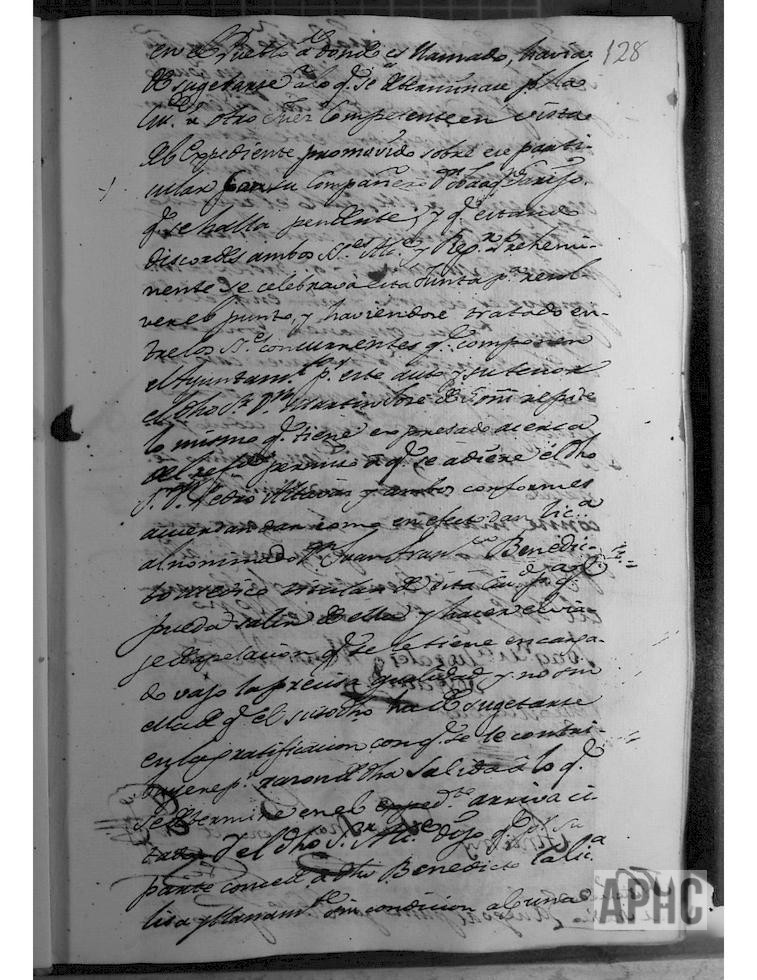 128
en el Pueblo a donde es llamado, havia
de sugetarse a lo q.e se determinare p.r la
Ciu.d u otro Juez Competente en vista
del Expediente promovido sobre este parti-
cular con su Compañero D.n
q.e se halla pendente, y q.e estando
discordes ambos S.res Alc.e y Reg.r Prehemi-
nente se celebrava esta Junta p.a resol-
ver el punto, y haviendose tratado en-
tre los S.res concurrentes q.e componen
el Ayuntam.to p.r este auto y su tenor
el dho S.r D.n Martin Jose de repite
lo mismo q.e tiene expresado acerca
del refer.do permiso a q.e se adiere el dho
S.r D.n Pedro y ambos conformes
acuerdan dar como en efecto dan lic.a
al nominado D.n Juan Fran.co Benedic-
to medico titular de esta Ciu.d p.a q.e
pueda salir de ella y hacer el via-
je de apelacion q.e se le tiene encarga-
do vajo la precisa qualidad y no sin
ella de q.e el susodho ha de sugetarse
en la gratificacion con q.e se le contri-
buyere p.r razon de dha salida a lo q.e
se determine en el exped.te arriva ci-
tado. Y el dho S.r Alc.e dijo q.e p.r su
parte concede a dho Benedicto la lic.a
lisa y llanam.te sin condicion alguna
APHC